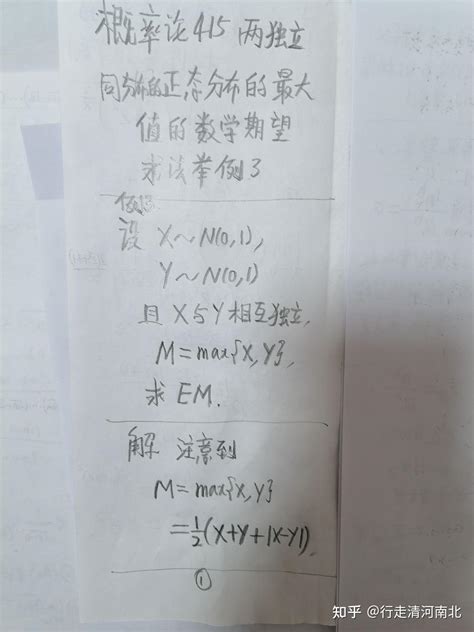 概率论415 两独立
同分布的正态分布的最大
值的数学期望
求法举例3
例3
设 X~N(0,1),
Y~N(0,1)
且 X与Y 相互独立,
M=max{X,Y},
求 EM.
解 注意到
M=max{X,Y}
=½(X+Y+|X-Y|),
①
知乎 @行走清河南北